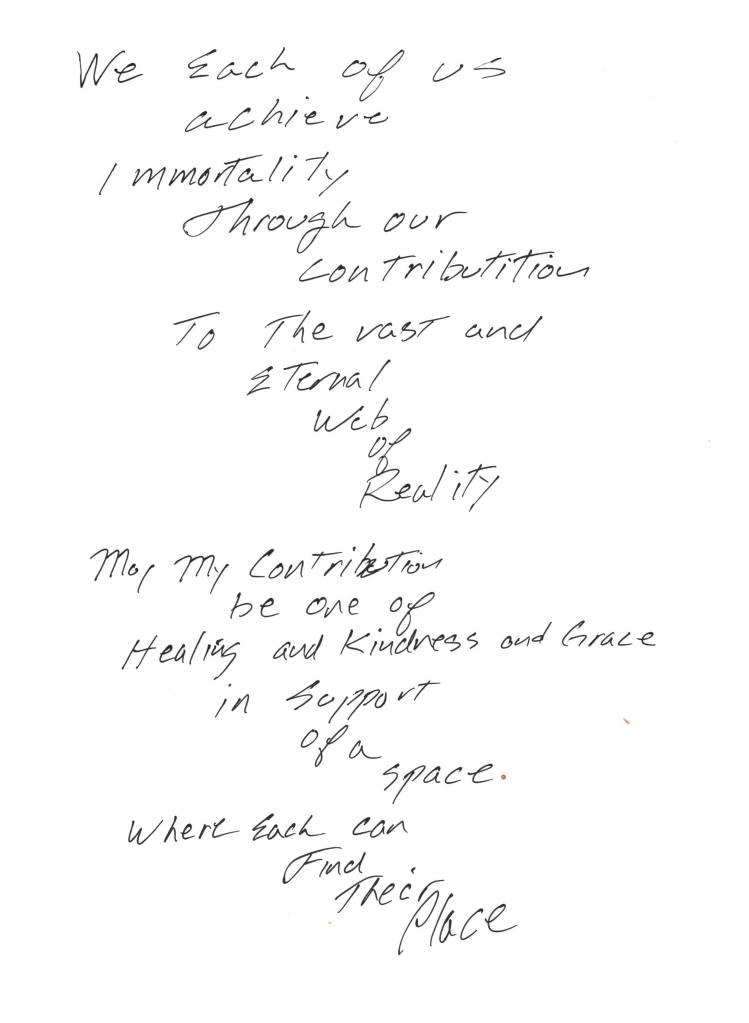 We Each of us
achieve
Immortality
Through our
Contributition
To The vast and
ETernal
Web
of
Reality
May My Contribution
be one of
Healing and Kindness and Grace
in Support
of a
space.
Where Each can
Find
Their
Place